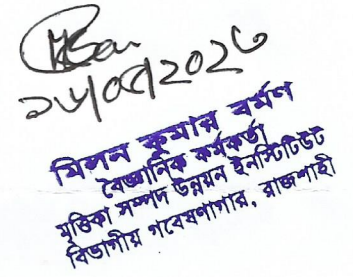 মিলন কুমার বর্মণ
বৈজ্ঞানিক কর্মকর্তা
মৃত্তিকা সম্পদ উন্নয়ন ইনস্টিটিউট
বিভাগীয় গবেষণাগার, রাজশাহী